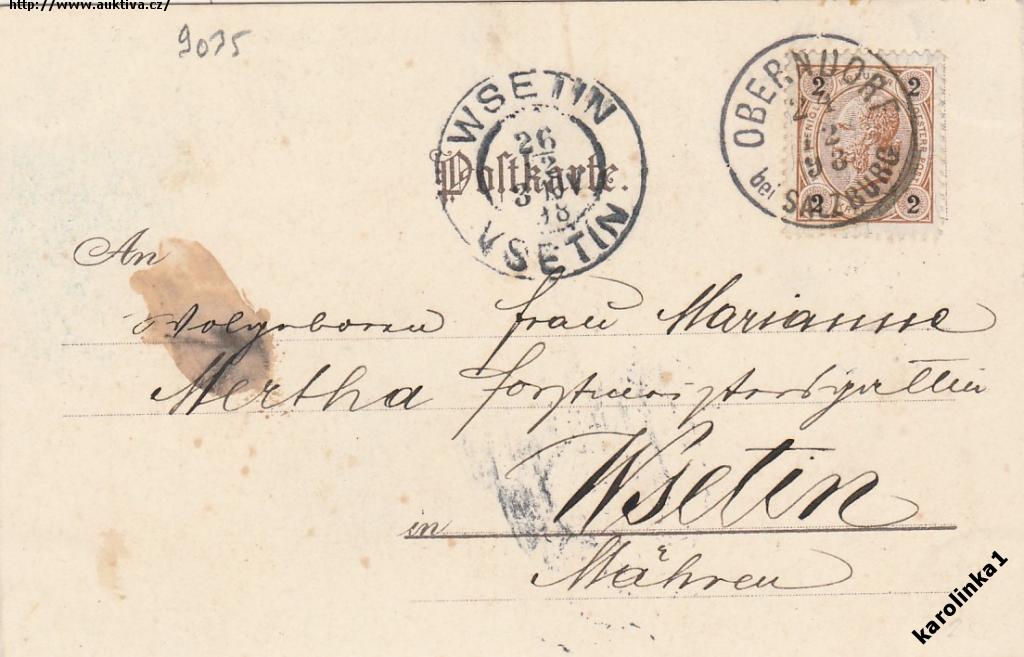 http://www.auktiva.cz/
9075
WSETIN
26
2
VSETÍN
OBERNDORF
bei SALZBURG
2 2
2 2
Postkarte.
An
Wolgeboren Frau Marianne
Mertha Forstmeistersgattin
in Wsetin
Mähren
karolinka1